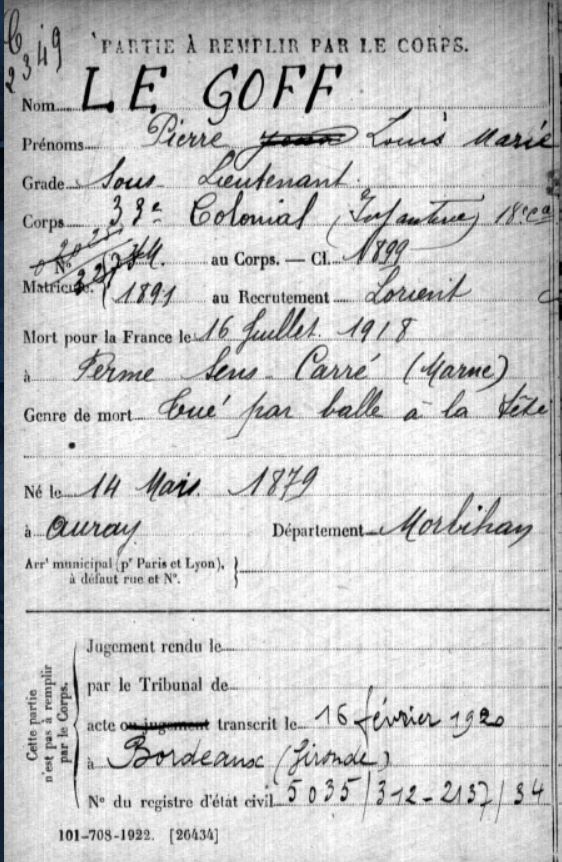 2349
PARTIE À REMPLIR PAR LE CORPS.
Nom LE GOFF
Prénoms Pierre Louis Marie
Grade Sous-Lieutenant
Corps 33e Colonial (Infanterie) 18e Cie
No au Corps. — Cl. 1899
Matricule. 1891 au Recrutement Lorient
Mort pour la France le 16 Juillet 1918
à Ferme Sens-Carré (Marne)
Genre de mort Tué par balle à la tête
Né le 14 Mars 1879
à Auray Département Morbihan
Arrt municipal (pr Paris et Lyon),
à défaut rue et No.
Cette partie
n'est pas à remplir
par le Corps.
Jugement rendu le
par le Tribunal de
acte ou jugement transcrit le 16 février 1920
à Bordeaux (Gironde)
No du registre d'état civil 5035/312-2137/34
101-708-1922. [26434]